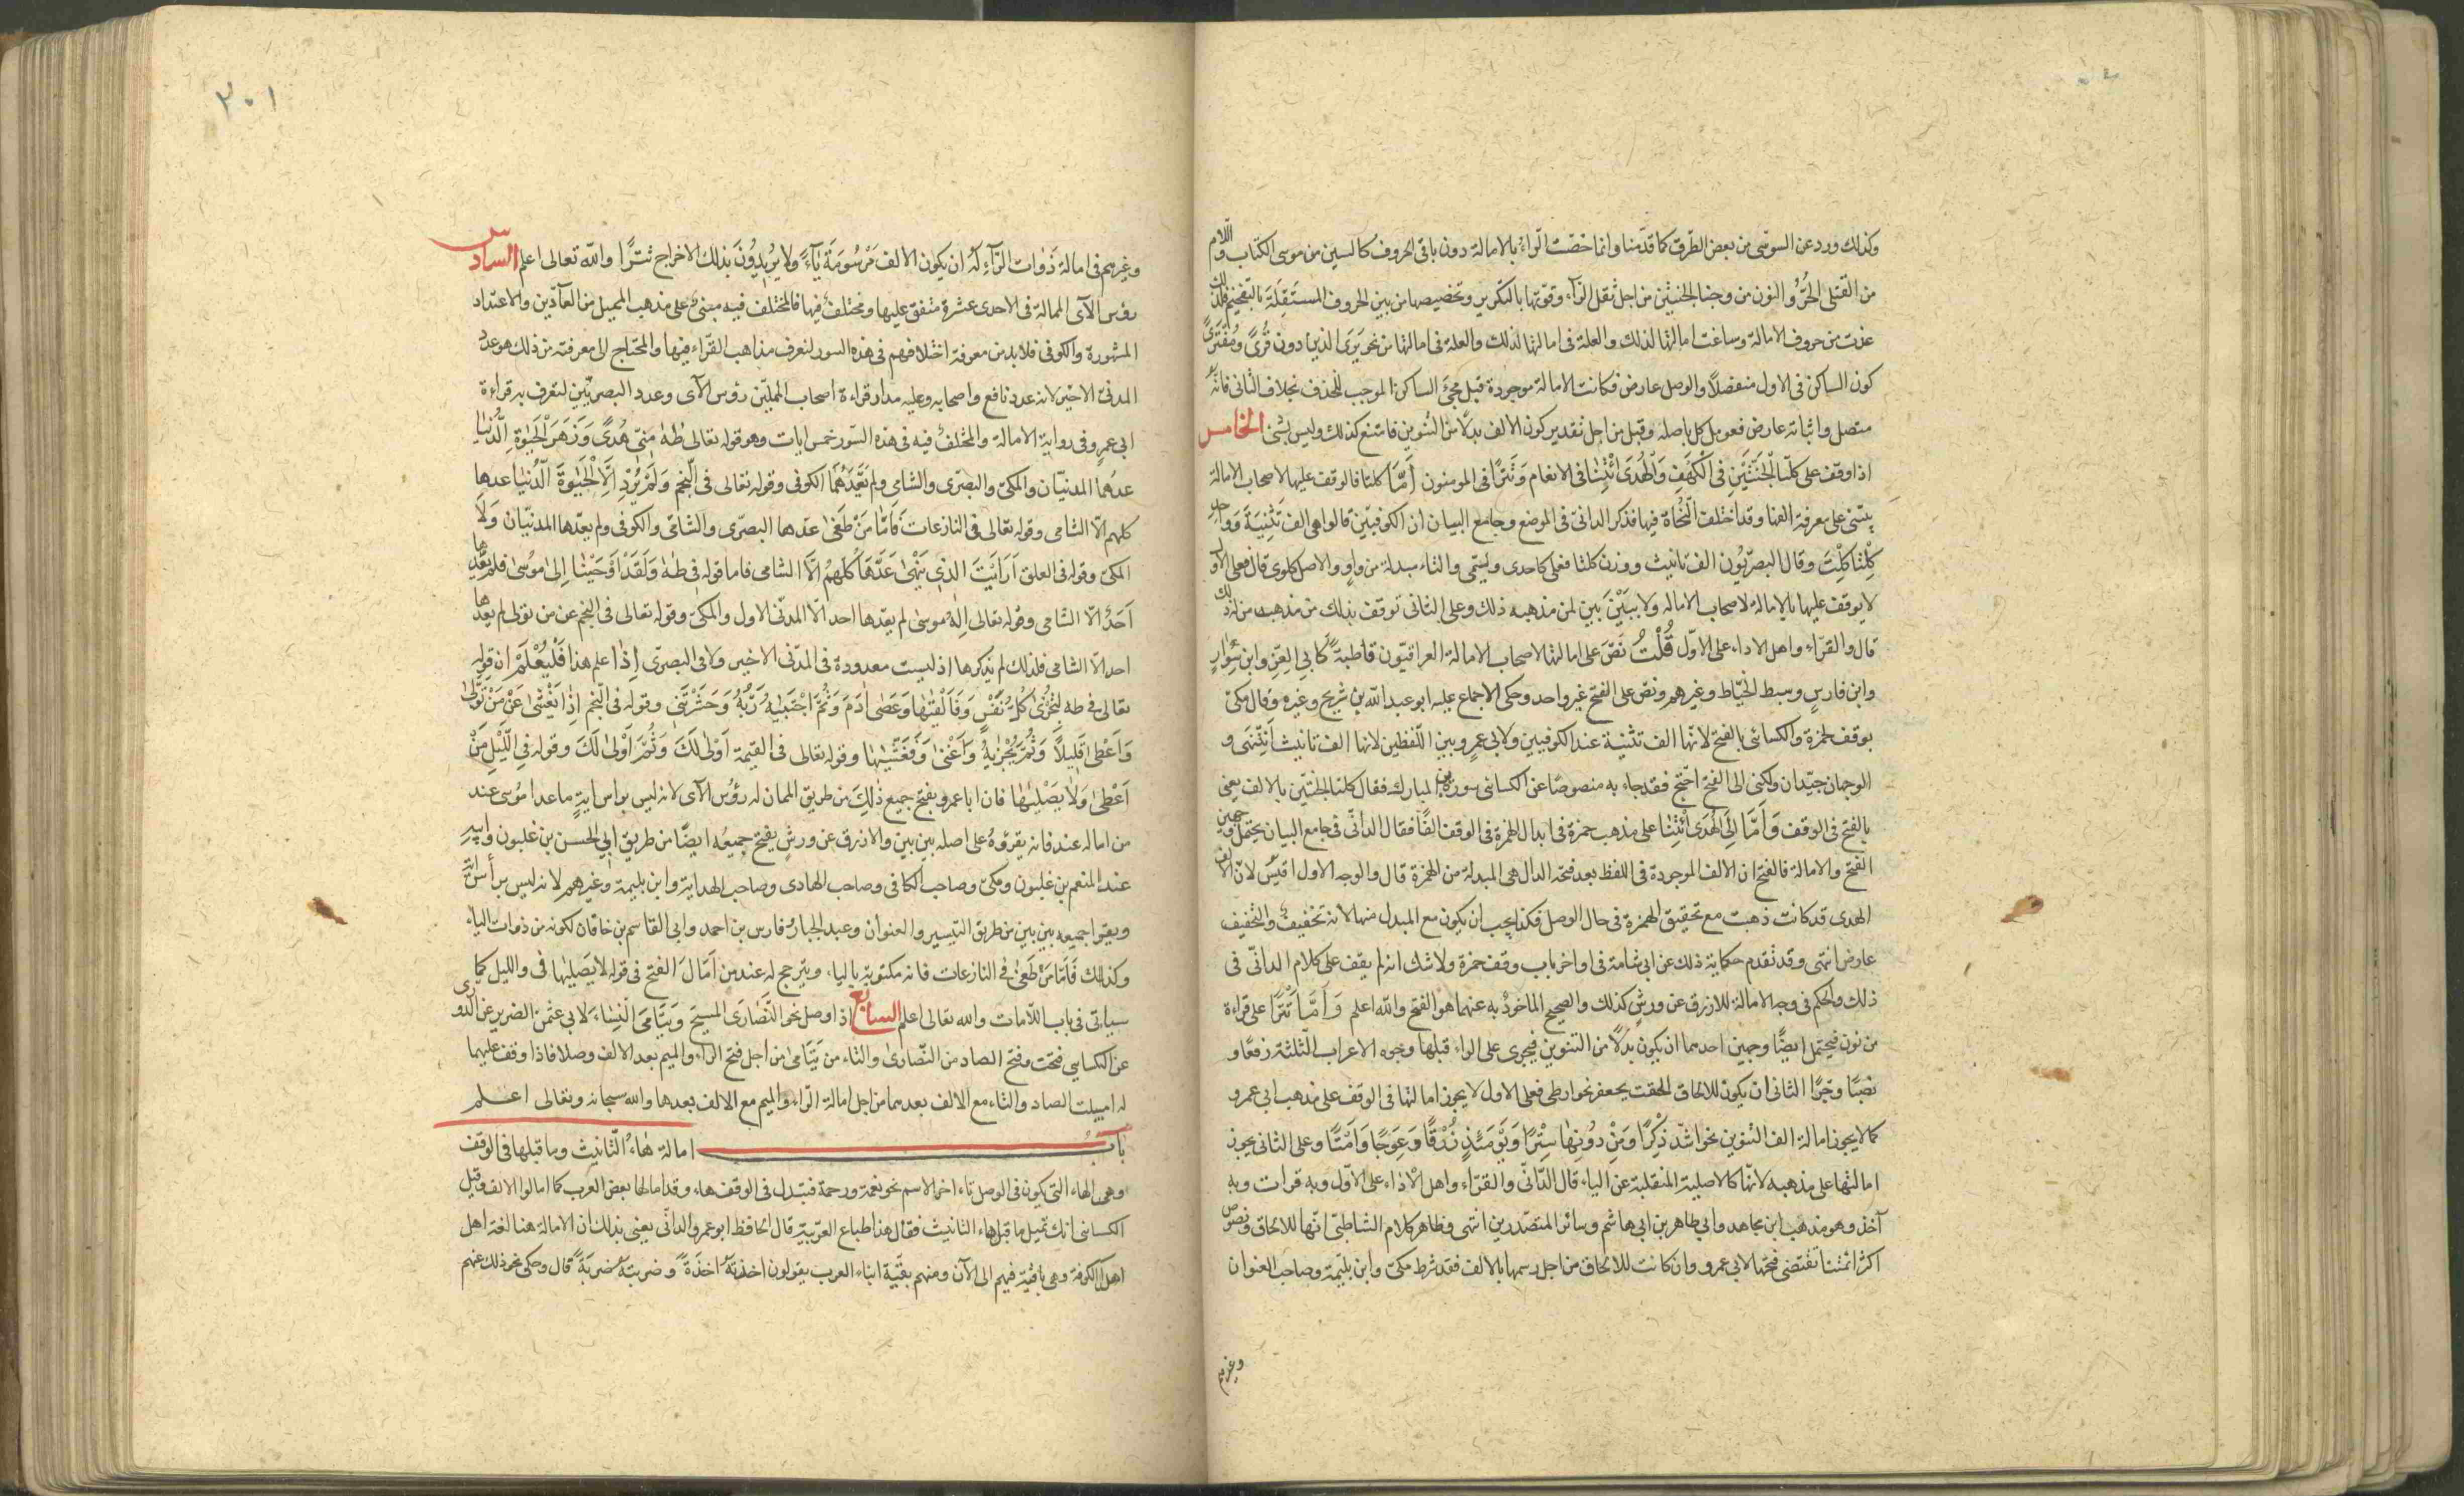 وكذلك ورد عن السوسى من بعض الطرق كما قدمنا وانما خصت الراء بالامالة دون باقى الحروف كالسين من موسى الكتاب واللام
من القتلى الحرّ والنون من وجنا الجنتين من اجل ثقل الرآء وقوتها بالتكرير وتخصيصها من بين الحروف المستفلة بالتفخيم فلذلك
عدت من حروف الامالة وساغت امالتها لذلك والعلة فى امالتها لذلك والعلة فى امالتها من نحو يرى الذين دون قُرًى ومُفْتَرًى
كون الساكن فى الاول منفصلًا والوصل عارض فكانت الامالة موجودة قبل مجئ الساكن الموجب للحذف بخلاف الثانى فانّه
متصل واثباته عارض فعومل كل باصله وقيل من اجل تقدير كون الالف بدلًا من التنوين فامتنع كذلك وليس بشئ الخامس
اذا وقف على كلتا الجنتين فى الكهف والهدى ائتنا فى الانعام وتترًا فى المومنون أمّا كلتا فالوقف عليها لاصحاب الامالة
يبتنى على معرفة الفها وقد اختلف النحاة فيها فذكر الدانىّ فى الموضح وجامع البيان ان الكوفيّين قالوا هى الف تثنية وواحد
كلتا كلت وقال البصريّون الف تانيث ووزن كلتا فعلى كاحدى وسيمى والتاء مبدلة من واو والاصل كلوى قال فعلى الاول
لا يوقف عليها بالامالة لاصحاب الاماله ولا ببين بين لمن مذهبه ذلك وعلى الثانى توقف بذلك من مذهبه من له ذلك
قال والقراء واهل الاداء على الاوّل قُلْتُ نصّ على امالتها لاصحاب الامالة العراقيّون قاطبة كابى العزّ وابن سوار
وابن فارس وسبط الخيّاط وغيرهم ونص على الفتح غير واحد وحكى الاجماع عليه ابو عبد الله بن شريح وغيره وقال مكىّ
يوقف لحمزة والكسائى بالفتح لانّها الف تثنية عند الكوفيين ولابى عمرو بين اللفظين لانها الف تانيث انتهى و
الوجهان جيّدان ولكنى الى الفتح اجنح فقد جاء به منصوصًا عن الكسائى سورة بن المبارك فقال كلتا الجنّتين بالالف يعنى
بالفتح فى الوقف وَأمّا الى الهدى ائتنا على مذهب حمزة فى ابدال الهمزة فى الوقف الفًا فقال الدانىّ فى جامع البيان يحتمل وجهين
الفتح والامالة فالفتح ان الالف الموجودة فى اللفظ بعد فتحة الدال هى المبدلة من الهمزة قال والوجه الاول اقيس لانّ الالف
الهدى قد كانت ذهبت مع تحقيق الهمزة فى حال الوصل فكذا يجب ان يكون مع المبدل منها لانه تخفيفٌ والتخفيف
عارض انتهى وقد تقدم حكاية ذلك عن ابى شامة فى اواخر باب وقف حمزة ولا شك انه لم يقف على كلام الدانىّ فى
ذلك والحكم فى وجه الامالة للازرق عن ورش كذلك والصحيح الماخوذ به عنهما هو الفتح والله اعلم وَأمّا تترًا على قراءة
من نون فيحتمل ايضًا وجهين احدهما ان يكون بدلًا من التنوين فيجرى على الراء قبلها وجوه الاعراب الثلثة رفعًا و
نصبًا وجرًّا الثانى ان يكون للالحاق الحقت بجعفر نحو ارطى فعلى الاول لا يجوز امالتها فى الوقف على مذهب ابى عمرو
كما لا يجوز امالة الف التنوين نحو اشدّ ذكرًا ومن دونها سترًا ويومئذ زرقًا وعوجًا وامتًا وعلى الثانى يجوز
امالتها على مذهبه لانّها كالاصلية المنقلبة عن الياء قال الدّانىّ والقراء واهل الاداء على الاوّل وبه قرات وبه
آخذ وهو مذهب ابن مجاهد وابى طاهر بن ابى هاشم وسائر المتصدرين انتهى وظاهر كلام الشاطبىّ انّها للالحاق ونصوص
اكثر ائمتنا تقتضى فتحها لابى عمرو وان كانت للالحاق من اجل رسمها بالالف فقد شرط مكىّ وابن بليمة وصاحب العنوان
وغيرهم
٣٠١
وغيرهم فى امالة ذوات الرّآء له ان يكون الالف مرسومة يآءً ولا يريدون بذلك الاخراج تترًا والله تعالى اعلم السادس
رؤس الآى الممالة فى الاحدى عشرة متفق عليها ومختلف فيها فالمختلف فيه مبنىّ على مذهب المميل من العآدّين والاعداد
المشهورة والكوفى فلا بد من معرفة اختلافهم فى هذه السور لتعرف مذاهب القرّاء فيها والمحتاج الى معرفته من ذلك هو عدد
المدنىّ الاخير لانه عدد نافع واصحابه وعليه مدار قراءة اصحاب المميلين رؤس الآى وعدد البصريّين لتعرف به قراءة
ابى عمرو فى رواية الامالة والمختلف فيه فى هذه السّور خمس ايات وهو قوله تعالى طه منّى هدًى وزهرة الحيوة الدّنيا
عدهما المدنيّان والمكىّ والبصرى والشامى ولم يعدّهما الكوفى وقوله تعالى فى النّجم ولم يرد الّا الحيوة الدّنيا عدها
كلهم الّا الشامى وقوله تعالى فى النازعات فامّا من طغى عدها البصرى والشامى والكوفى ولم يعدّها المدنيّان ولا
المكىّ وقوله فى العلق أرأيت الذى ينهى عدّها كلهم الّا الشامى فاما قوله فى طه ولقد اوحينا الى موسى فلم يعدّها
أحدٌ الّا الشامى وقوله تعالى اله موسى لم يعدّها احد الّا المدنىّ الاول والمكىّ وقوله تعالى فى النجم عن من تولى لم يعدها
احد الّا الشامى فلذلك لم نذكرها اذ ليست معدودة فى المدنى الاخير ولا فى البصرى إذا علم هذا فليعلم ان قوله
تعالى فى طه لتجزى كل نفس وفالقيها وعصى آدم وثم اجتبيه ربه وحشرتنى وقوله فى النّجم اذ يغشى عن من تولى
واعطى قليلًا وثم يجزيه واغنى وفغشّيها وقوله تعالى فى القيمة اولى لك وثم اولى لك وقوله فى اللّيل من
اعطى ولا يصليها فان ابا عمرو يفتح جميع ذلك من طريق الممالن له رؤس الآى لانه ليس براس اية ما عدا موسى عند
من اماله عنه فانه يقرؤه على اصله بين بين والازرق عن ورش يفتح جميعه ايضًا من طريق ابى الحسن بن غلبون وابيه
عبد المنعم بن غلبون ومكى وصاحب الكافى وصاحب الهادى وصاحب الهداية وابن بليمة وغيرهم لانه ليس برأس آية
ويقرا جميعه بين بين من طريق التيسير والعنوان وعبد الجبار وفارس بن احمد وابى القاسم بن خاقان لكونه من ذوات الياء
وكذلك فامّا من طغى فى النازعات فانه مكتوبة بالياء، ويترجح له عند من امال الفتح فى قوله لا يصليها فى والليل كما
سياتى فى باب اللامات والله تعالى اعلم السابع اذا وصل نحو النّصارى المسيح ويتامى النساء لابى عثمن الضرير عن الدورى
عن الكسايى فتحت وفتح الصاد من النّصارى والتاء من يتامى من اجل فتح الراء والميم بعد الالف وصلا فاذا وقف عليهما
له اميلت الصاد والتاء مع الالف بعدهما من اجل امالة الرّاء والميم مع الالف بعدها والله سبحانه وتعالى اعلم
بابُ امالة هاء التّانيث وما قبلها فى الوقف
وهى الهاء التى يكون فى الوصل تاء اخر الاسم نحو نعمة ورحمة فتبدل فى الوقف هاء، وقد امالها بعض العرب كما امالوا الالف وقيل
الكسائى انك تميل ما قبل هاء التانيث فقال هذا طباع العربيّة قال الحافظ ابو عمرو الدانى يعنى بذلك ان الامالة هنا لغة اهل
اهل الكوفة وهى باقية فيهم الى الآن ومنهم بقيّة ابناء العرب يقولون اخذته اخذةً وضربته ضربةً قال وحكى نحو ذلك عنهم